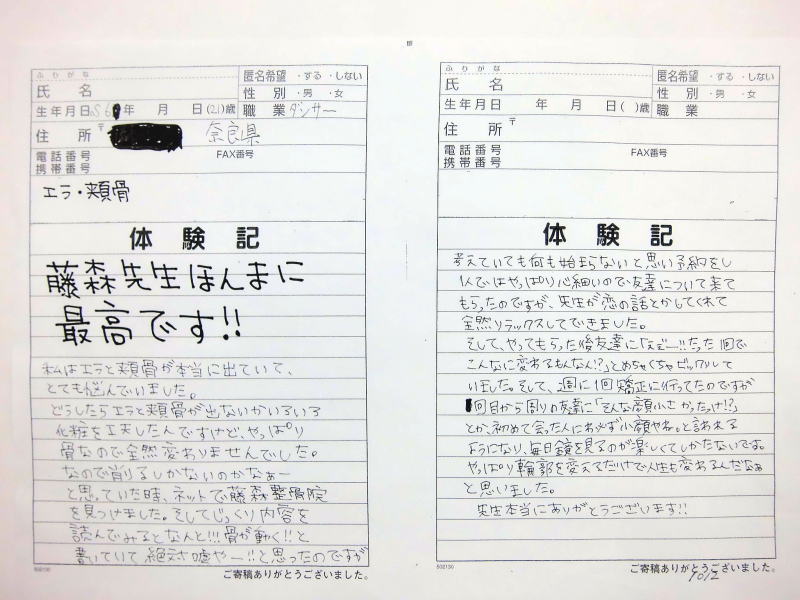 ふりがな
氏名
匿名希望 ・する ・しない
性別 ・男 ・女
生年月日 S6 年 月 日(21)歳
職業 ダンサー
住所 〒 奈良県
電話番号
携帯番号
FAX番号
エラ・頬骨
体験記
藤森先生ほんまに
最高です!!
私はエラと頬骨が本当に出ていて、
とても悩んでいました。
どうしたらエラと頬骨が出ないかいろいろ
化粧を工夫したんですけど、やっぱり
骨なので全然変わりませんでした。
なので削るしかないのかなぁー
と思っていた時、ネットで藤森整骨院
を見つけました。そしてじっくり内容を
読んでみるとなんと!!!骨が動く!!と
書いていて絶対嘘やー!!と思ったのですが
502130
ご寄稿ありがとうございました。
ふりがな
氏名
匿名希望 ・する ・しない
性別 ・男 ・女
生年月日 年 月 日( )歳
職業
住所 〒
電話番号
携帯番号
FAX番号
体験記
考えていても何も始まらないと思い予約をし
1人ではやっぱり心細いので友達について来て
もらったのですが、先生が恋の話とかしてくれて
全然リラックスしてできました。
そして、やってもらった後友達に「えぇー!!たった1回で
こんなに変わるもんなん!?」とめちゃくちゃビックリして
いました。そして、週に1回矯正に行ってたのですが
1回目から周りの友達に「そんな顔小さかったっけ!?」
とか、初めて会った人に必ず小顔やね。と言われる
ようになり、毎日鏡を見るのが楽しくてしかたないです。
やっぱり輪郭を変えるだけで人生も変わるんだなぁ
と思いました。
先生本当にありがとうございます!!
502130
ご寄稿ありがとうございました。
1012